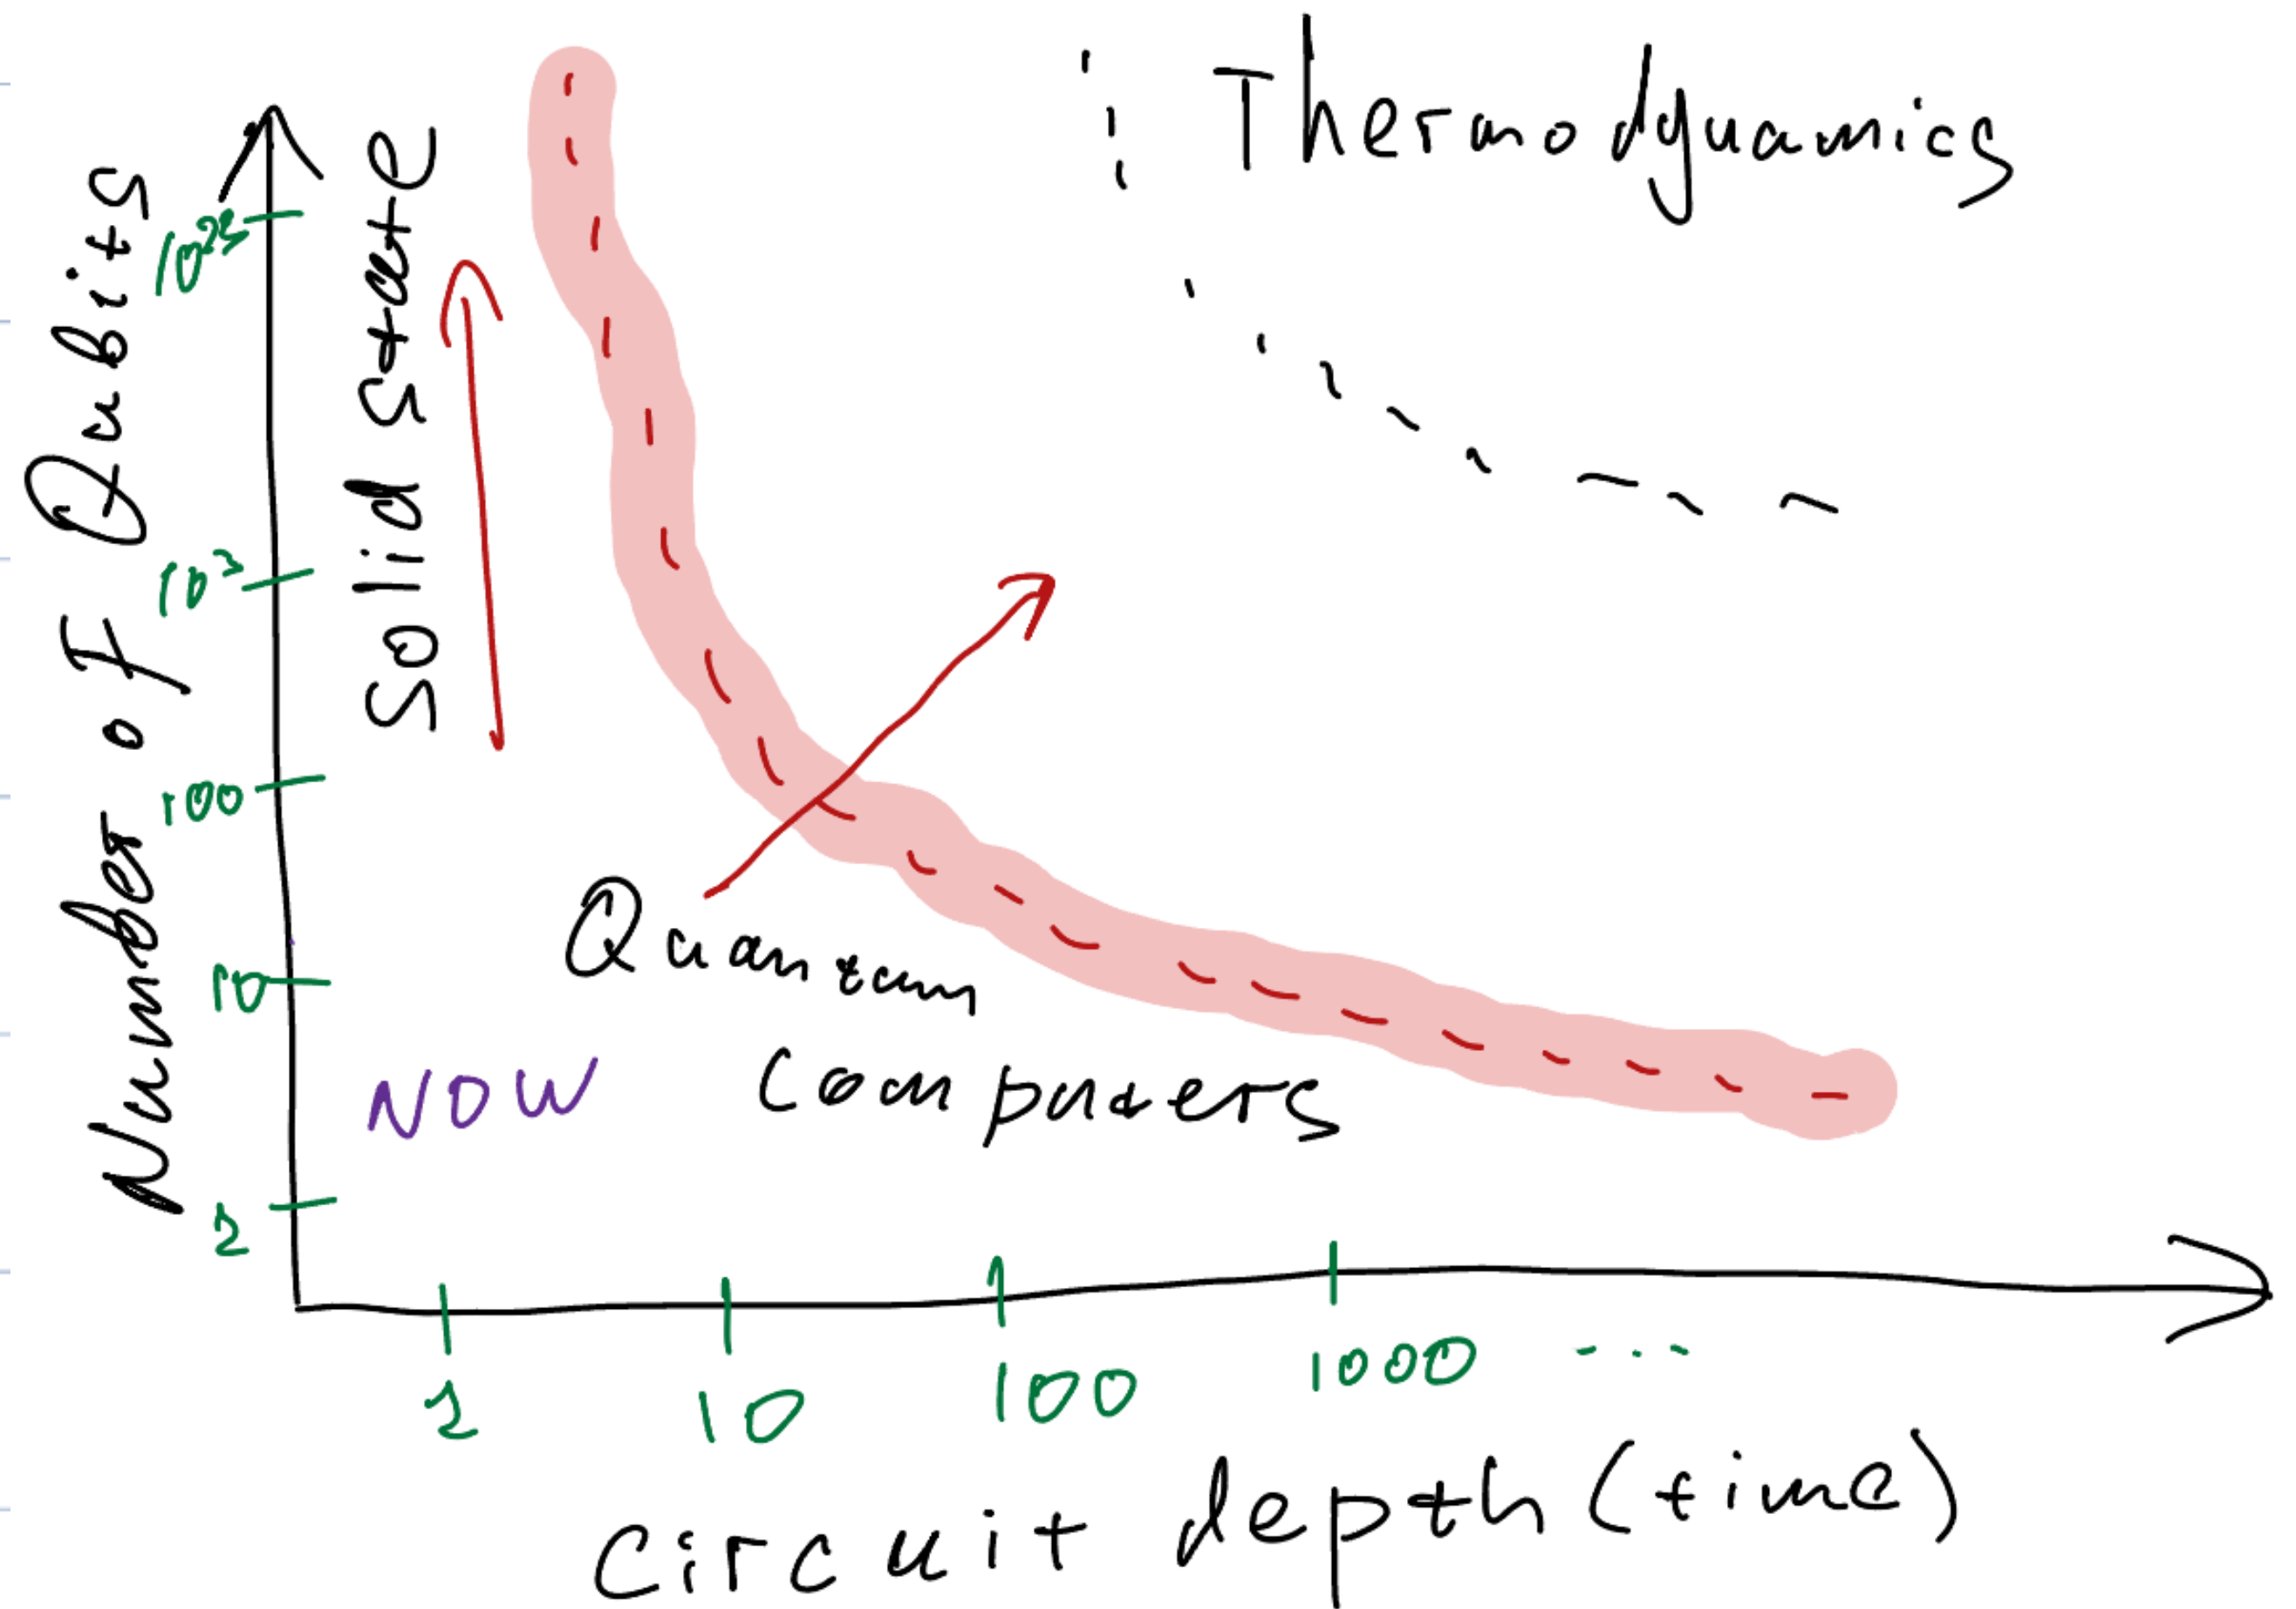 Thermodynamics
Number of Qubits
Solid state
10²³
10³
100
10
2
Quantum
Computers
NOW
1
10
100
1000 ...
Circuit depth (time)